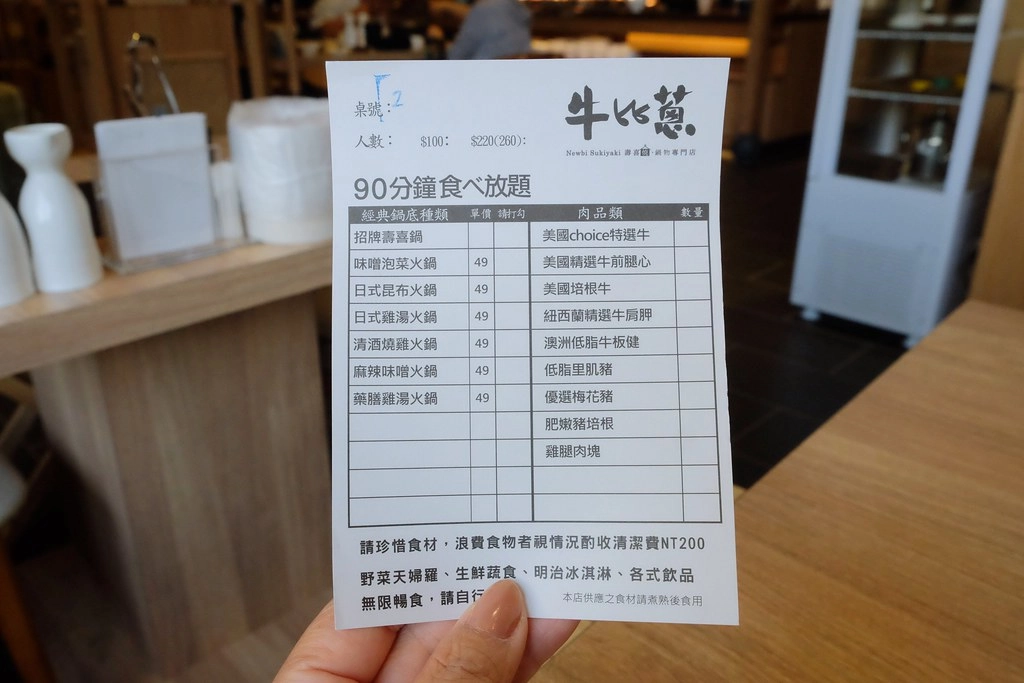 桌號：2
牛比蔥
人數： $100： $220(260)：
Newbi Sukiyaki 壽喜燒·鍋物專門店
90分鐘食べ放題
經典鍋底種類 單價 請打勾 肉品類 數量
招牌壽喜鍋 美國choice特選牛
味噌泡菜火鍋 49 美國精選牛前腿心
日式昆布火鍋 49 美國培根牛
日式雞湯火鍋 49 紐西蘭精選牛肩胛
清酒燒雞火鍋 49 澳洲低脂牛板健
麻辣味噌火鍋 49 低脂里肌豬
藥膳雞湯火鍋 49 優選梅花豬
肥嫩豬培根
雞腿肉塊
請珍惜食材，浪費食物者視情況酌收清潔費NT200
野菜天婦羅、生鮮蔬食、明治冰淇淋、各式飲品
無限暢食，請自行
本店供應之食材請煮熟後食用